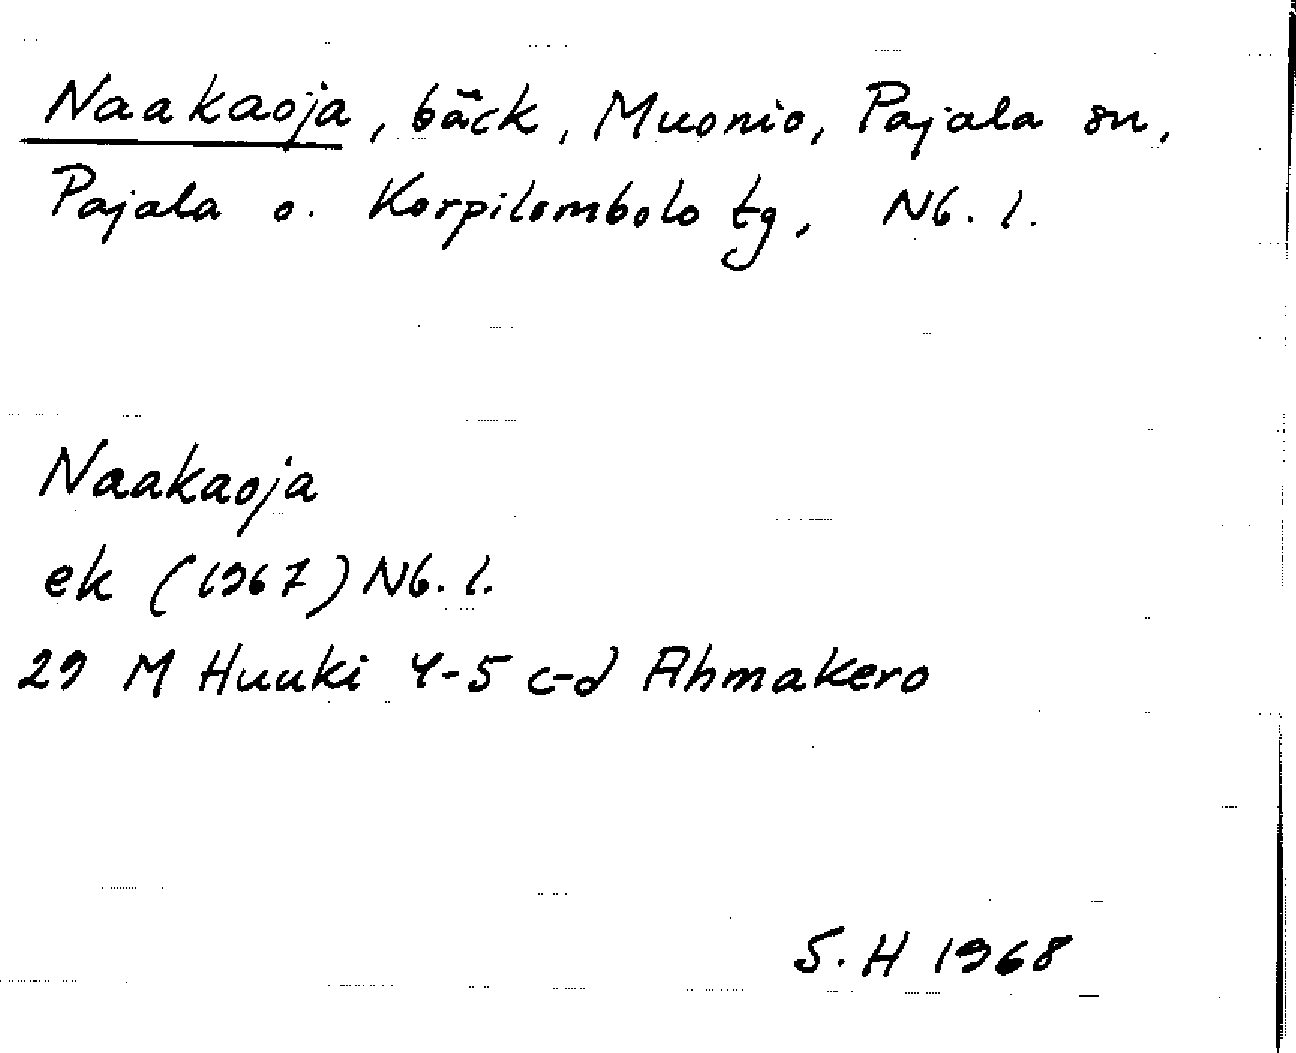 Naakaoja, bäck, Muonio, Pajala sn,
Pajala o. Korpilombolo tg, Nb. l.
Naakaoja
ek (1967) Nb. l.
29 M Huuki 4-5 c-d Ahmakero
S. H 1968